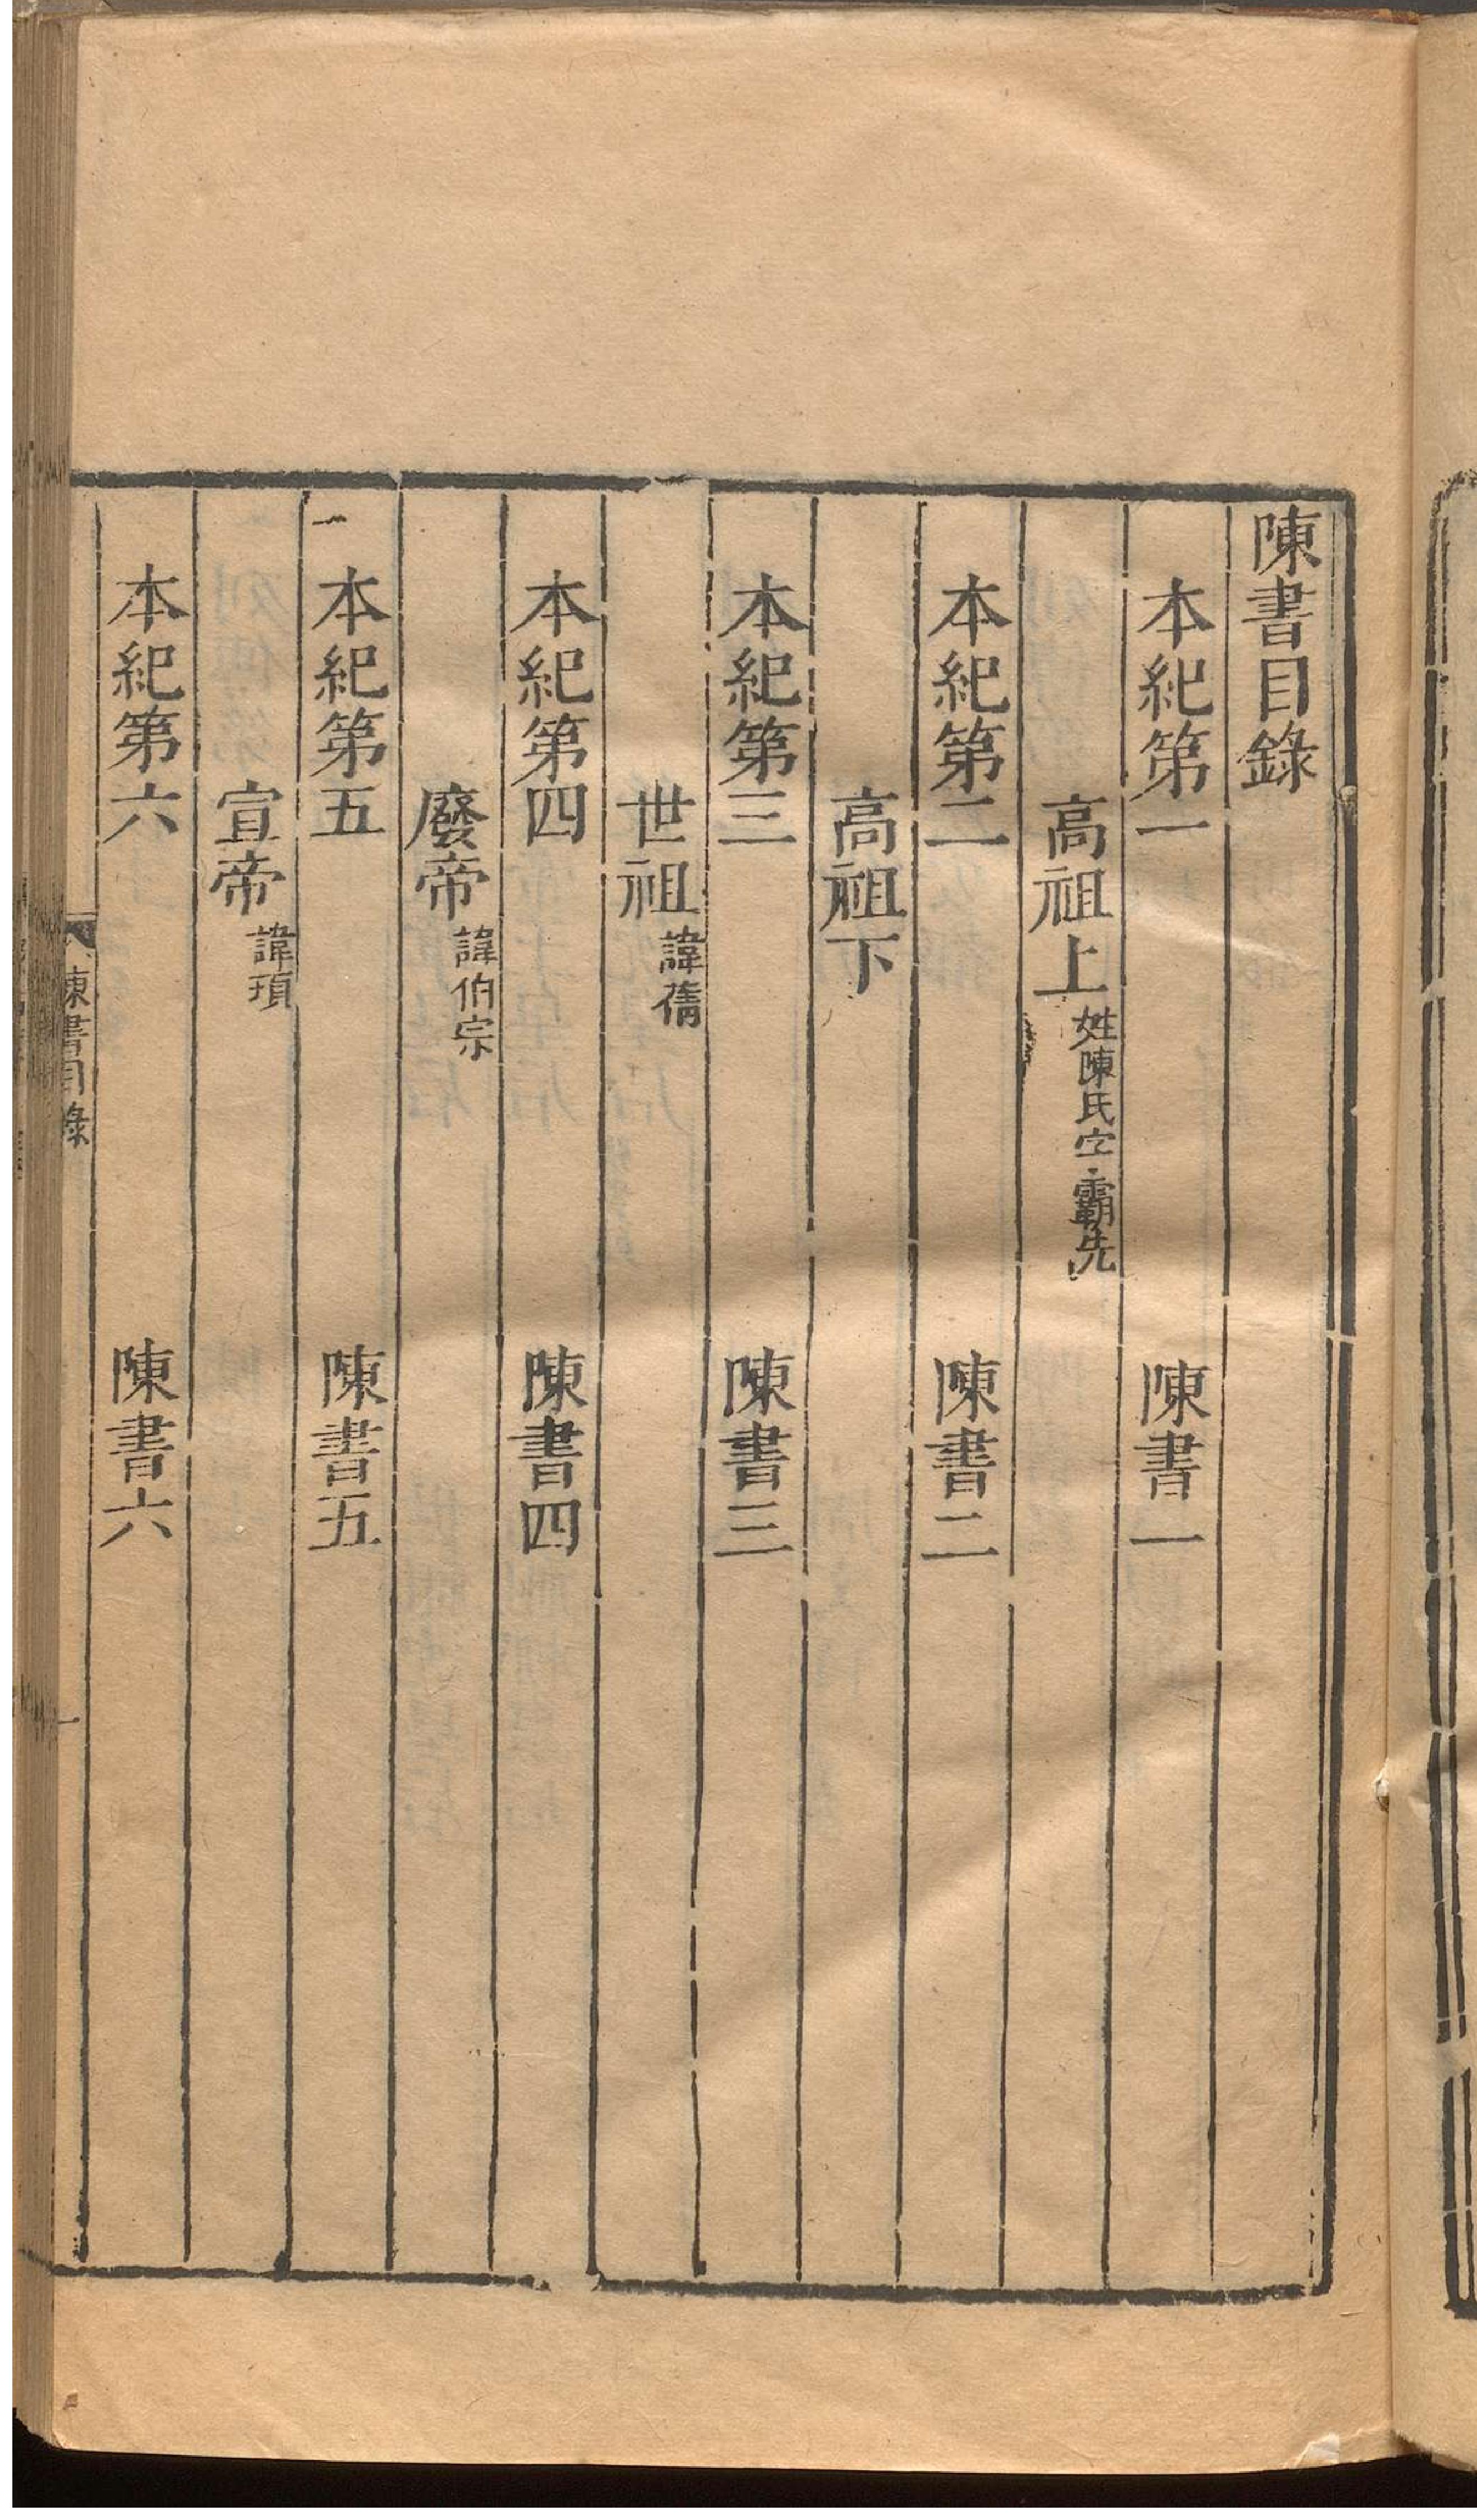 陳書目錄
本紀第一 陳書一
高祖上 姓陳氏 霸先
本紀第二 陳書二
高祖下
本紀第三 陳書三
世祖 諱蒨
本紀第四 陳書四
廢帝 諱伯宗
本紀第五 陳書五
宣帝 諱頊
本紀第六 陳書六
陳書目錄
一